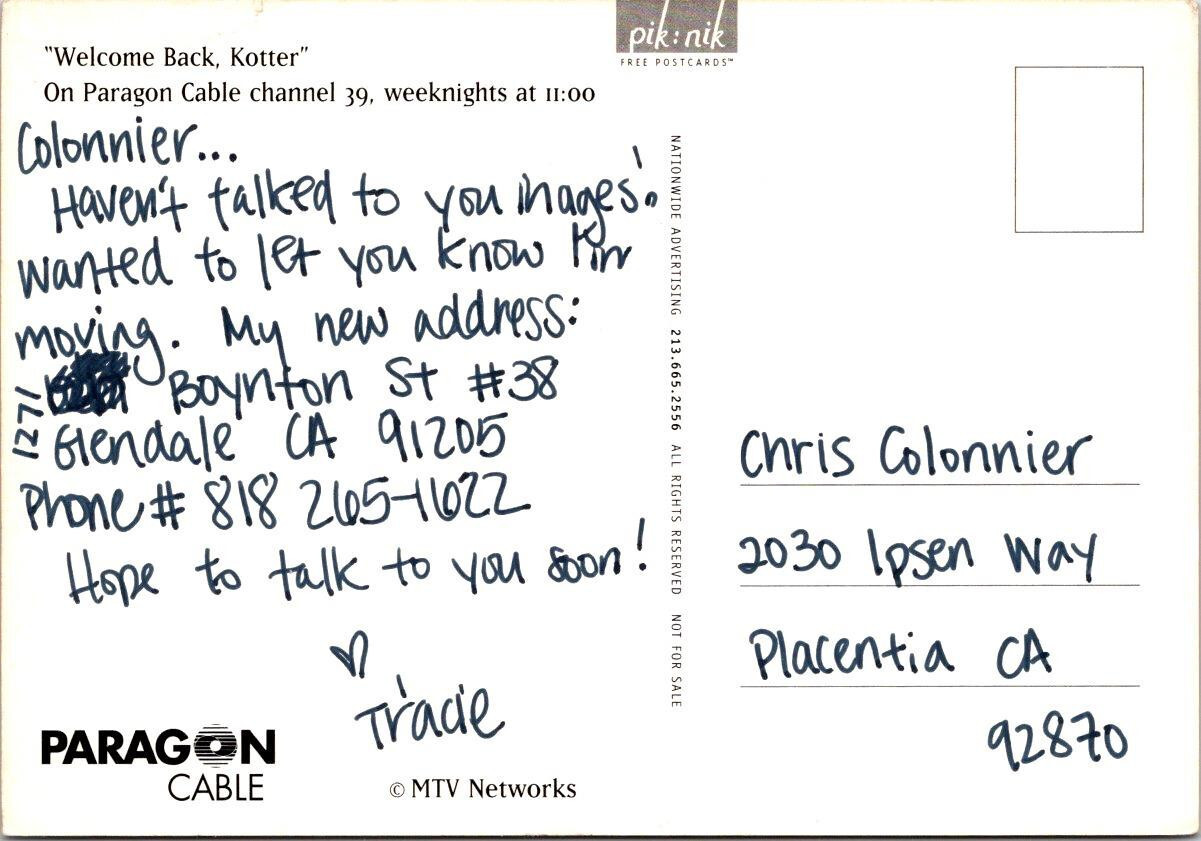 "Welcome Back, Kotter"
On Paragon Cable channel 39, weeknights at 11:00
Colonnier...
Haven't talked to you in ages!
wanted to let you know I'm
moving. My new address:
1271 Boynton St #38
Glendale CA 91205
Phone # 818 265-1622
Hope to talk to you soon!
♡
Tracie
PARAGON
CABLE
© MTV Networks
pik:nik
FREE POSTCARDS™
NATIONWIDE ADVERTISING 213.665.2556 ALL RIGHTS RESERVED NOT FOR SALE
Chris Colonnier
2030 Ipsen Way
Placentia CA
92870